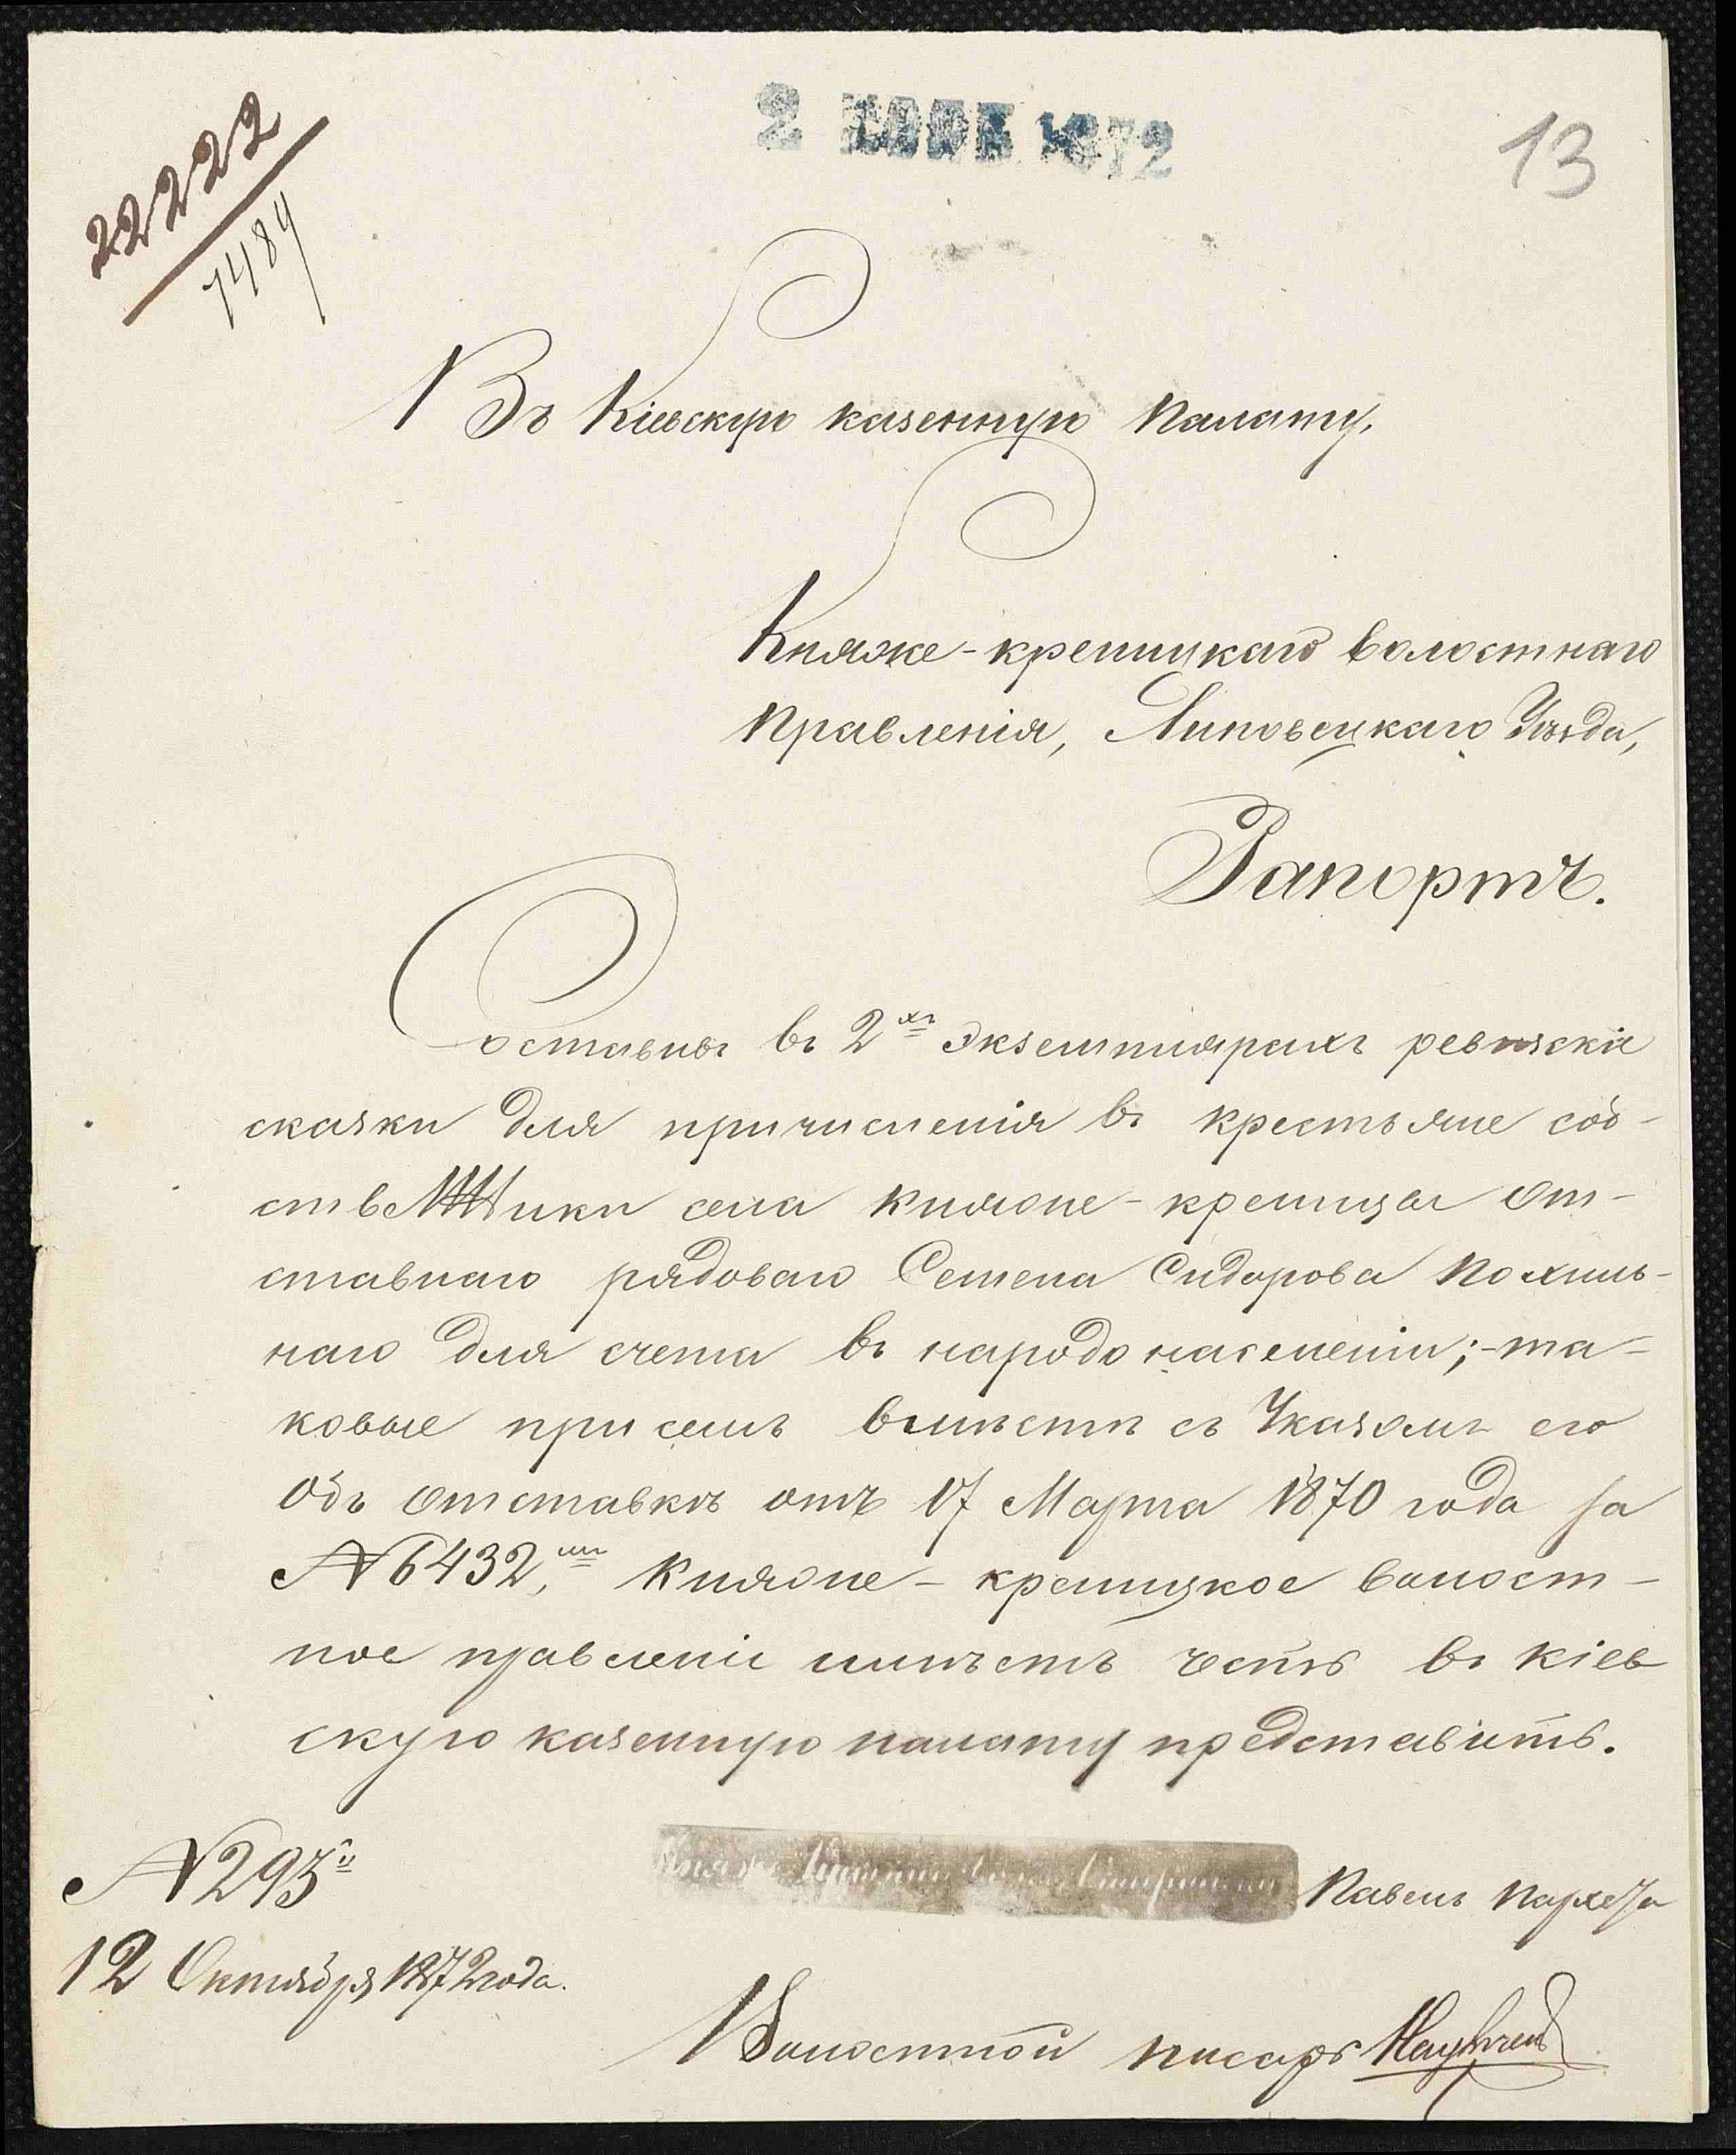 2 НОЯБ 1872
13
22222
7489
Въ Кіевскую казенную Палату,
Княже-креницкаго волостнаго
Правленія, Липовецкаго Уѣзда,
Рапортъ.
Составивъ въ 2хъ экземплярахъ ревизскіе
сказки для причисленія въ крестьяне соб-
ственники села Княже-креницы от-
ставнаго рядоваго Семена Сидорова Похиль-
наго для счета въ народонаселеніи; - та-
ковые при семъ вмѣстѣ съ Указомъ его
объ отставкѣ отъ 17 Марта 1870 года за
№ 6432мъ, Княже-креницкое волост-
ное правленіе имѣетъ честь въ Кіев
скую казенную палату представить.
№ 293й
12 Октября 1872 года.
Павелъ
Волостной писарь